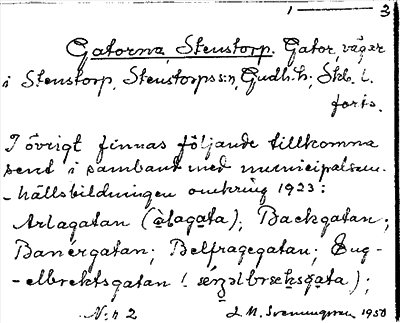 1 — 3
Gatorna, Stenstorp. Gator, vägar
i Stenstorp, Stenstorps sn, Gudh. h., Skb. l.
forts.
I övrigt finnas följande tillkomna
send i samband med municipalsam-
-hällsbildningen omkring 1923:
Arlagatan (àlagata); Backgatan;
Banérgatan; Belfragegatan; Eng-
-elbrektsgatan (
N:r 2 J. M. Svenungsson 1950